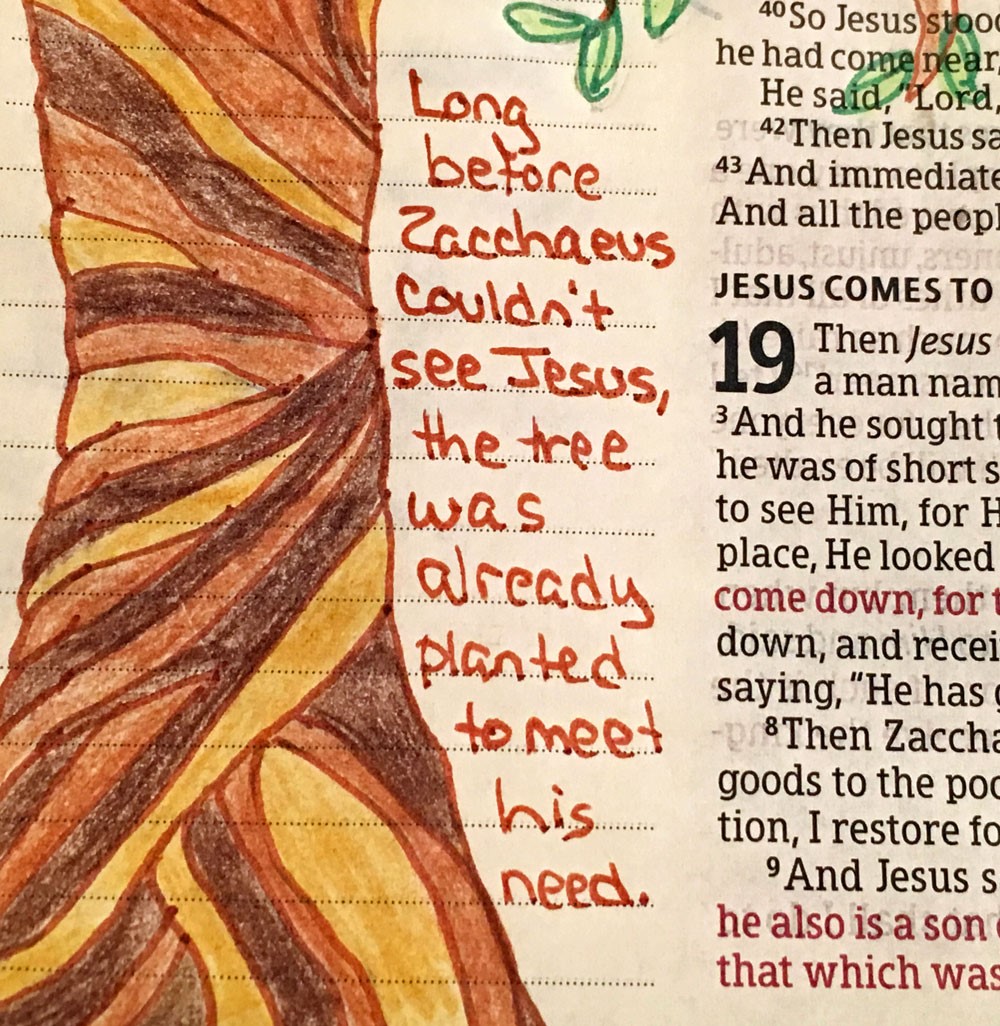 Long
before
Zacchaeus
couldn't
see Jesus,
the tree
was
already
planted
to meet
his
need.
40 So Jesus stood
he had come near,
He said, "Lord,
42 Then Jesus
43 And immediate
And all the
JESUS COMES TO
19 Then Jesus
a man
3 And he sought
he was of short
to see Him, for
place, He looked
come down, for
down, and
saying, "He has
8 Then
goods to the
tion, I restore
9 And Jesus
he also is a son
that which was